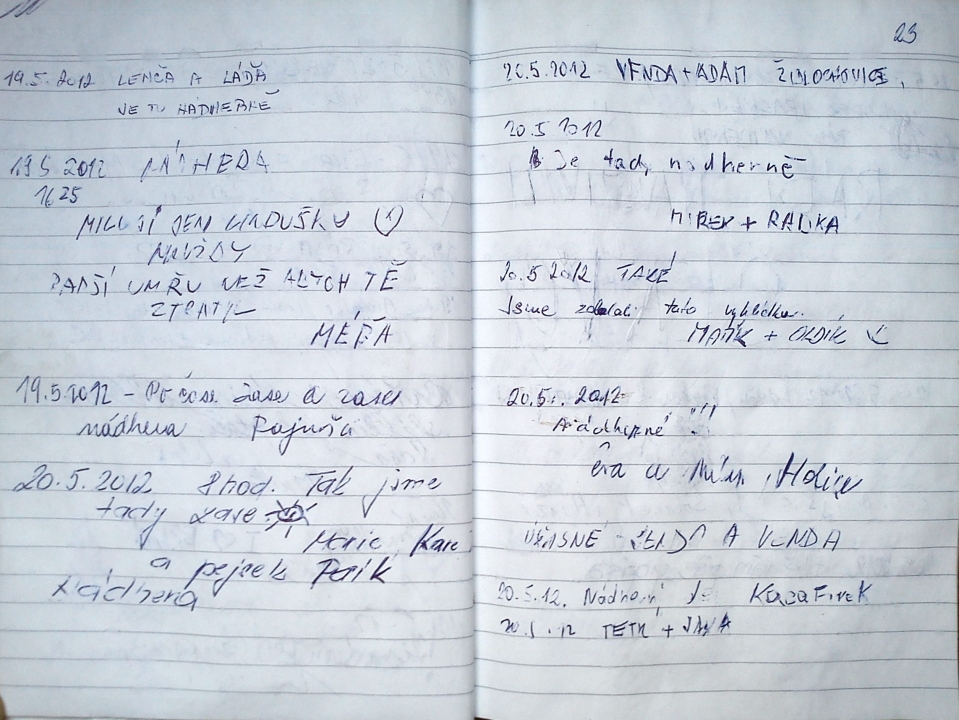 19.5.2012 LENČA A LÁĎA
JE TU NÁDHERNĚ
19.5.2012 NÁDHERA
1625
MILUJI JEN LINDUŠKU
NAVŽDY
RADŠI UMŘU NEŽ ABYCH TĚ
ZTRATIL
MÉĎA
19.5.2012 - Po čase zase a zase
nádhera Rajuša
20.5.2012 8 hod. Tak jsme
tady zase
Marie, Kare
a pejsek Perik
Nádhera
23
20.5.2012 VENDA + ADAM ŽIDLOCHOVICE,
20.5 2012
Je tady nádherně
MIREK + RALIKA
20.5 2012 TAKÉ
Jsme zdolali tuto vyhlídku.
MAŇK + OLDÍK
20.5. 2012
Nádherné !!!
a Holice
ÚŽASNÉ - A VENDA
20.5.12. Nádherný
20.5.12 TETK + JANA